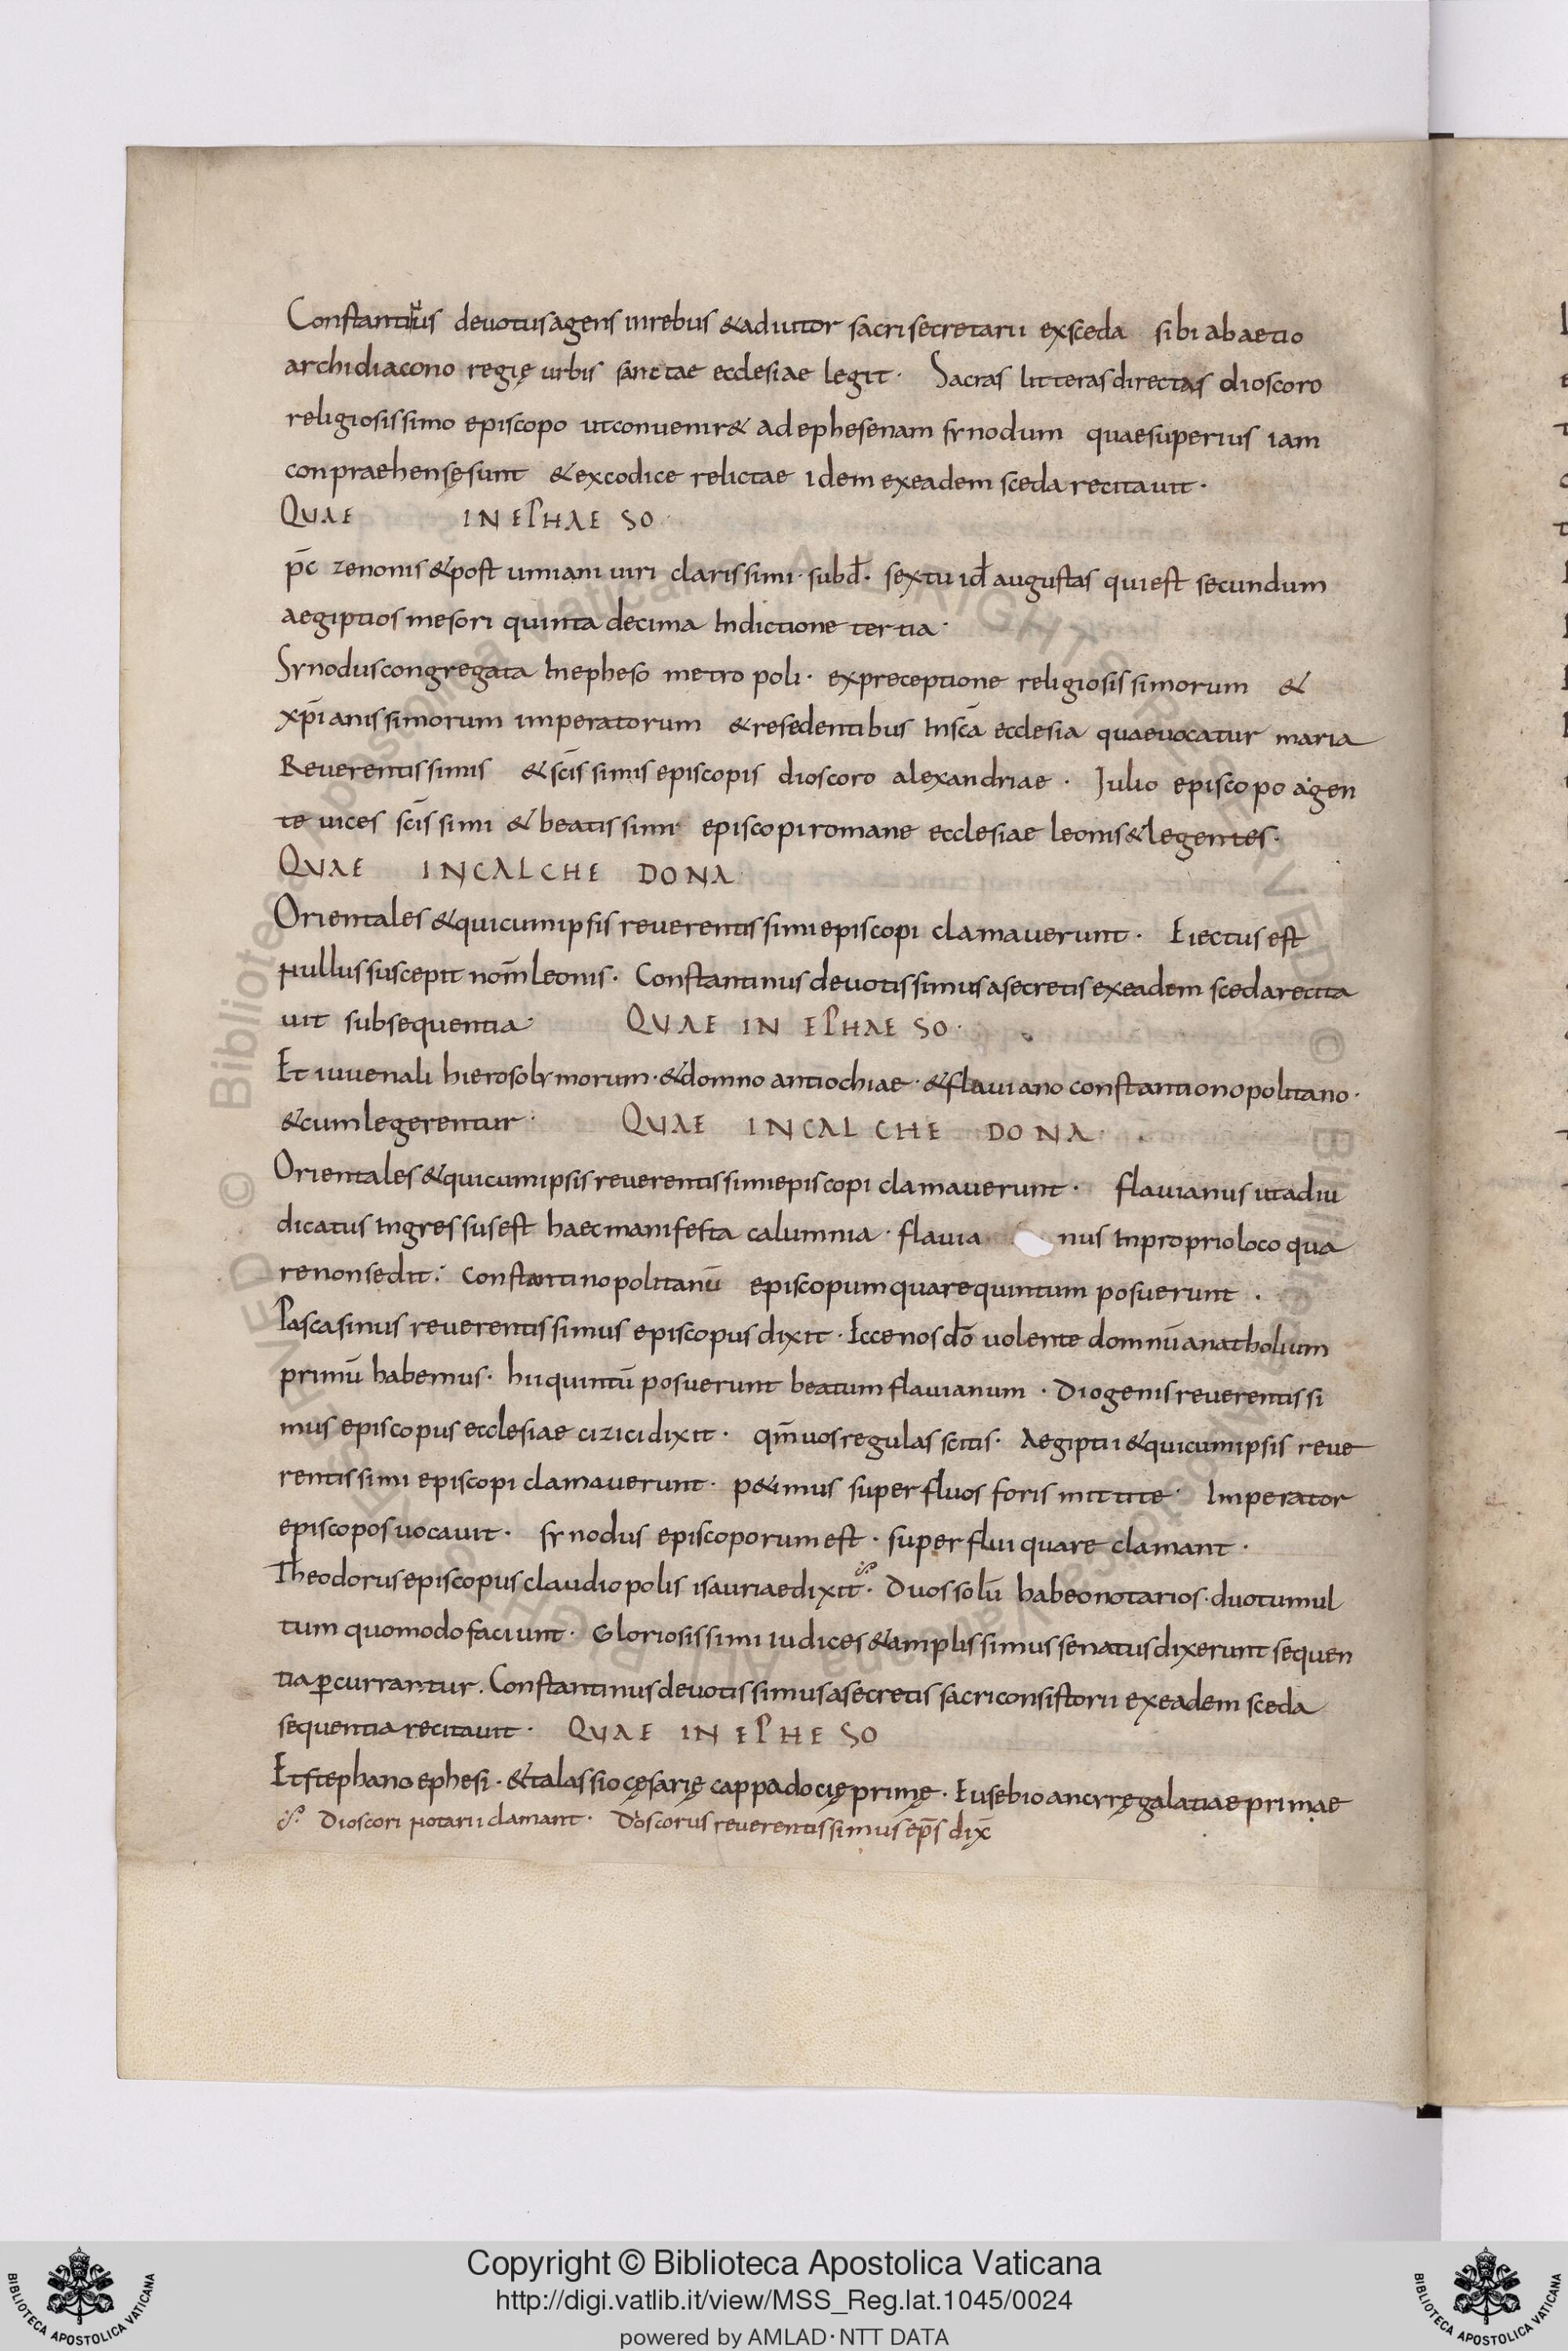 Constantiꝰus deuotus agens in rebus & adiutor sacri secretarii ex sceda sibi ab aetio
archidiacono regię urbis sanctae ecclesiae legit· Sacras litteras directas dioscoro
religiosissimo episcopo ut conuenir& ad ephesenam synodum quae superius iam
conpraehensę sunt & ex codice relictae idem ex eadem sceda recitauit·
QUAE IN EPHAESO
p̄c zenonis & post umiani uiri clarissimi· subđ· sextu iđ augustas qui est secundum
aegiptios mesori quinta decima Indictione tertia·
Synodus congregata In epheso metropoli· ex preceptione religiosissimorum &
xp̄ianissimorum imperatorum & resedentibus In sc̄a ecclesia quae uocatur maria
Reuerentissimis & sc̄issimis episcopis dioscoro alexandriae· Julio episcopo agen
te uices sc̄issimi & beatissimi episcopi romane ecclesiae leonis & legentes·
QUAE IN CALCHEDONA·
Orientales & qui cum ipsis reuerentissimi episcopi clamauerunt· Eiectus est
Nullus suscepit nom̄ Leonis· Constantinus deuotissimus a secretis ex eadem sceda recita
uit subsequentia· QUAE IN EPHAESO·
Et iuuenali hierosolymorum· & domno antiochiae· & flauiano constantionopolitano·
& cum legerentur· QUAE IN CALCHEDONA·
Orientales & qui cum ipsis reuerentissimi episcopi clamauerunt· flauianus ut adiu
dicatus Ingressus est haec manifesta calumnia· flauia nus In proprio loco qua
re non sedit· constantinopolitanū episcopum quare quintum posuerunt·
Pascasinus reuerentissimus episcopus dixit· Ecce nos dō uolente domnū anatholium
primū habemus· hii quintū posuerunt beatum flauianum· Diogenis reuerentissi
mus episcopus ecclesiae cizici dixit· qm̄ uos regulas scitis· Aegiptii & qui cum ipsis reue
rentissimi episcopi clamauerunt· p&imus superfluos foris mittite· Imperator
episcopos uocauit· synodus episcoporum est· superflui quare clamant·
Theodorus episcopus claudiopolis isauriae dixit· Duos solū habeo notarios· duo tumul
tum quomodo faciunt· Gloriosissimi iudices & amplissimus senatus dixerunt sequen
tia ꝑcurrantur. Constantinus deuotissimus a secretis sacri consistorii ex eadem sceda
sequentia recitauit· QUAE IN EPHESO
Et stephano ephesi· & talassio cęsarię cappadocię primę· Eusebio ancyrę galatiae primae
Dioscori Notarii clamant· Dioscorus reuerentissimus ep̄s dix̄
Copyright © Biblioteca Apostolica Vaticana
http://digi.vatlib.it/view/MSS_Reg.lat.1045/0024
powered by AMLAD·NTT DATA
BIBLIOTECA APOSTOLICA VATICANA
BIBLIOTECA APOSTOLICA VATICANA